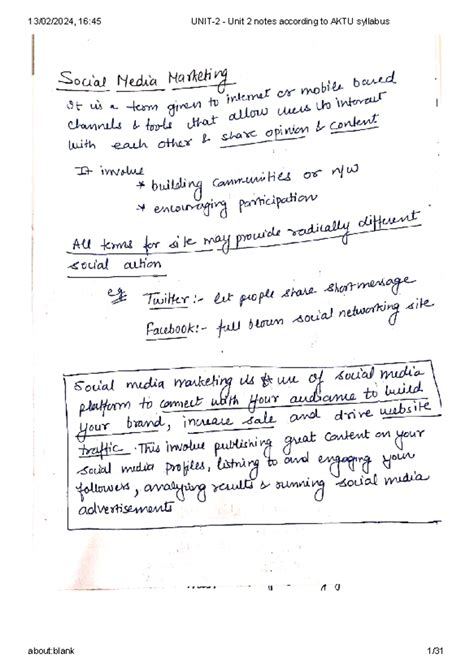 13/02/2024, 16:45 UNIT-2 - Unit 2 notes according to AKTU syllabus
Social Media Marketing
It is a term given to internet or mobile based
channels & tools that allow users to interact
with each other & share opinion & content
It involve
* building communities or n/w
* encouraging participation
All terms for site may provide radically different
social action
eg Twitter:- let people share short message
Facebook:- full blown social networking site
Social media marketing is use of social media
platform to connect with your audiance to build
your brand, increase sale and drive website
traffic. This involve publishing great content on your
social media profiles, listning to and engaging your
followers, analyzing results & running social media
advertisements
about:blank 1/31